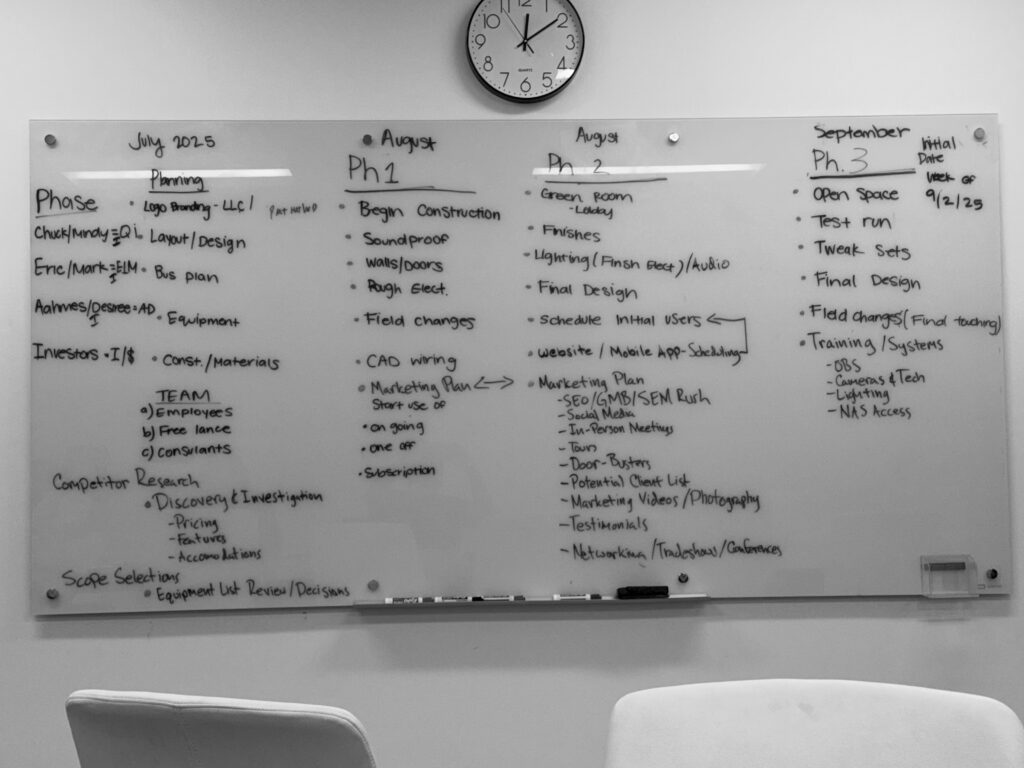 12
1
2
3
4
5
6
7
8
9
10
11
QUARTZ
July 2025
Planning
Phase
• Logo Branding - LLC /
Chuck/Mindy
Layout/Design
Eric/Mark = ELM • Bus plan
Aahmes/Desiree = AD • Equipment
Investors • I/$ • Const./Materials
TEAM
a) Employees
b) Free lance
c) Consulants
Competitor Research
• Discovery & Investigation
- Pricing
- Features
- Accomodations
Scope Selections
• Equipment List Review/Decisions
August
Ph 1
• Begin Construction
• Soundproof
• Walls/Doors
• Rough Elect.
• Field changes
• CAD wiring
• Marketing Plan ↔
Start use of
• on going
• one off
• Subscription
August
Ph. 2
• Green Room
- Lobby
• Finishes
• Lighting (Finsh Elect)/Audio
• Final Design
• Schedule Initial Users ←
• Website / Mobile App - Scheduling
• Marketing Plan
- SEO/GMB/SEM Rush
- Social Media
- In-Person Meetings
- Tours
- Door-Busters
- Potential Client List
- Marketing Videos/Photography
- Testimonials
- Networking/Tradeshow/Conferences
September
Ph. 3
Initial
Date
Week of
9/2/25
• Open Space
• Test run
• Tweak Sets
• Final Design
• Field changes (Final touching)
• Training/Systems
- OBS
- Cameras & Tech
- Lighting
- NAS Access